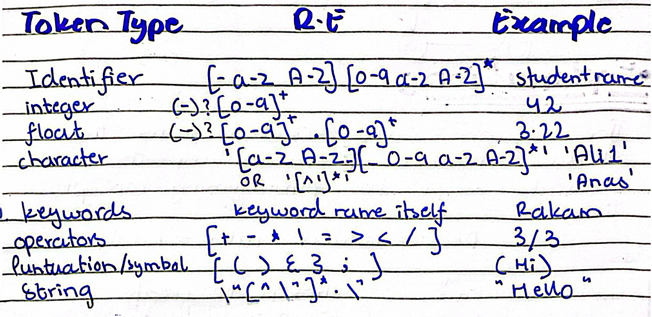 Token Type R.E Example
Identifier [- a-z A-Z] [0-9 a-z A-Z]* studentname
integer (-)? [0-9]+ 42
float (-)? [0-9]+ . [0-9]+ 3.22
character '[a-z A-Z][_ 0-9 a-z A-Z]*' 'Ali1'
OR '[^']*' 'Anas'
keywords keyword name itself Rakam
operators [+ - * ! = > < / ] 3/3
Puntuation/symbol [ ( ) { } ; ] (Hi)
String \"[^\"]*.\" "Hello"